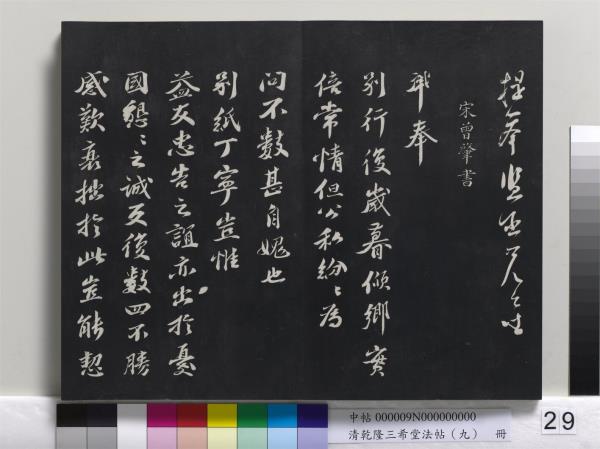 宋曾肇書
奉
別行後歲暮傾鄉實
倍常情但公私紛〻為
問不數甚自媿也
別紙丁寧豈惟
益友忠告之誼亦出於憂
國懇〻之誠反復數四不勝
感歎衰拙於此豈能恝
中帖 000009N000000000
清乾隆三希堂法帖（九） 冊
29